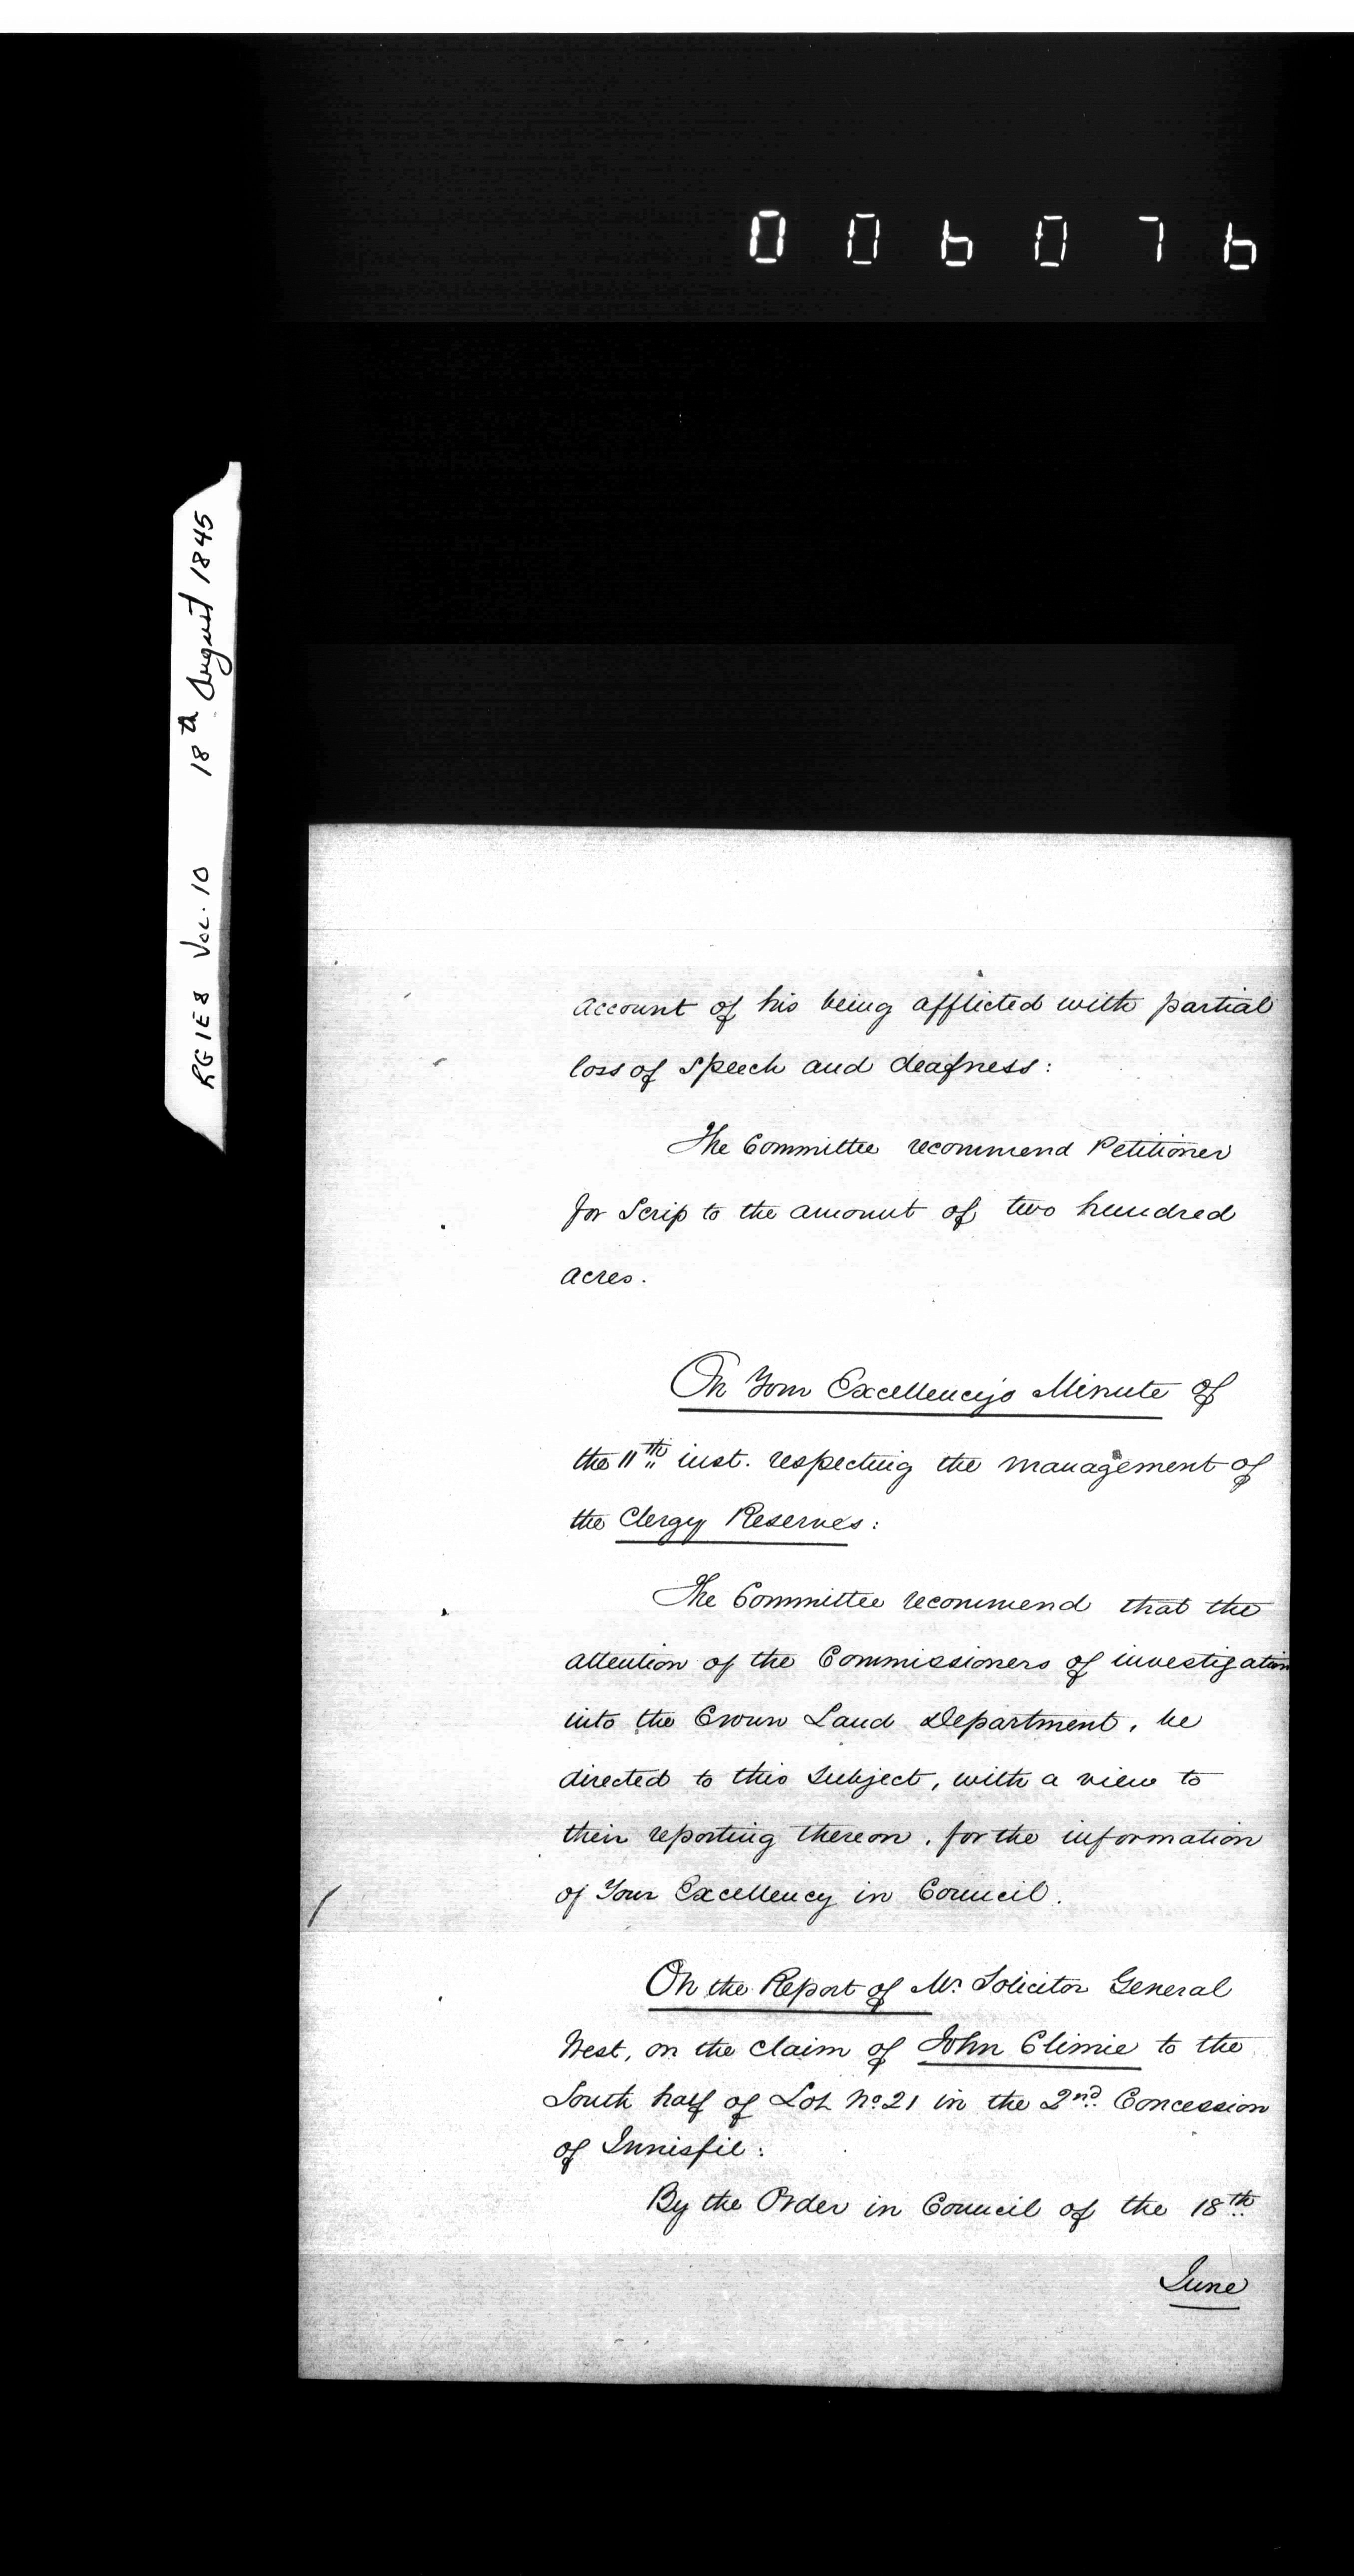 006076
RG1E8 Vol. 10 18th August 1845
account of his being afflicted with partial
loss of speech and deafness:
The Committee recommend Petitioner
for Scrip to the amount of two hundred
acres.
On Your Excellency's Minute of
the 11th inst. respecting the management of
the Clergy Reserves:
The Committee recommend that the
attention of the Commissioners of investigation
into the Crown Land Department, be
directed to this subject, with a view to
their reporting thereon, for the information
of Your Excellency in Council.
On the Report of Mr. Solicitor General
West, on the claim of John Climie to the
South half of Lot No. 21 in the 2nd Concession
of Innisfil:
By the Order in Council of the 18th
June